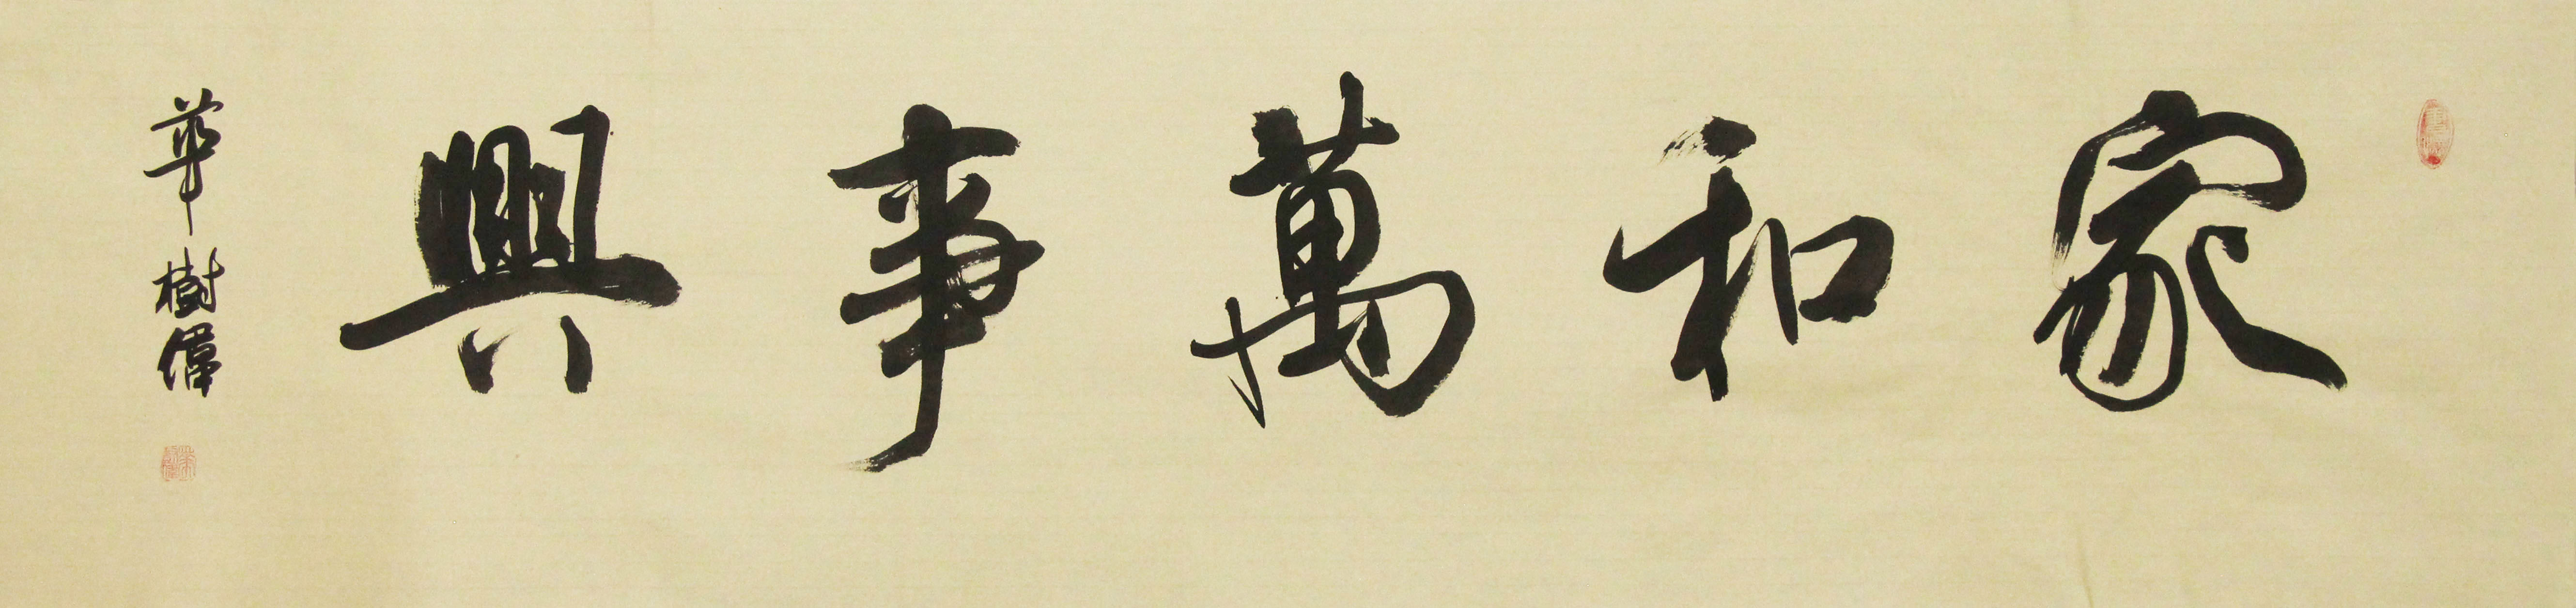 家和萬事興
華樹偉